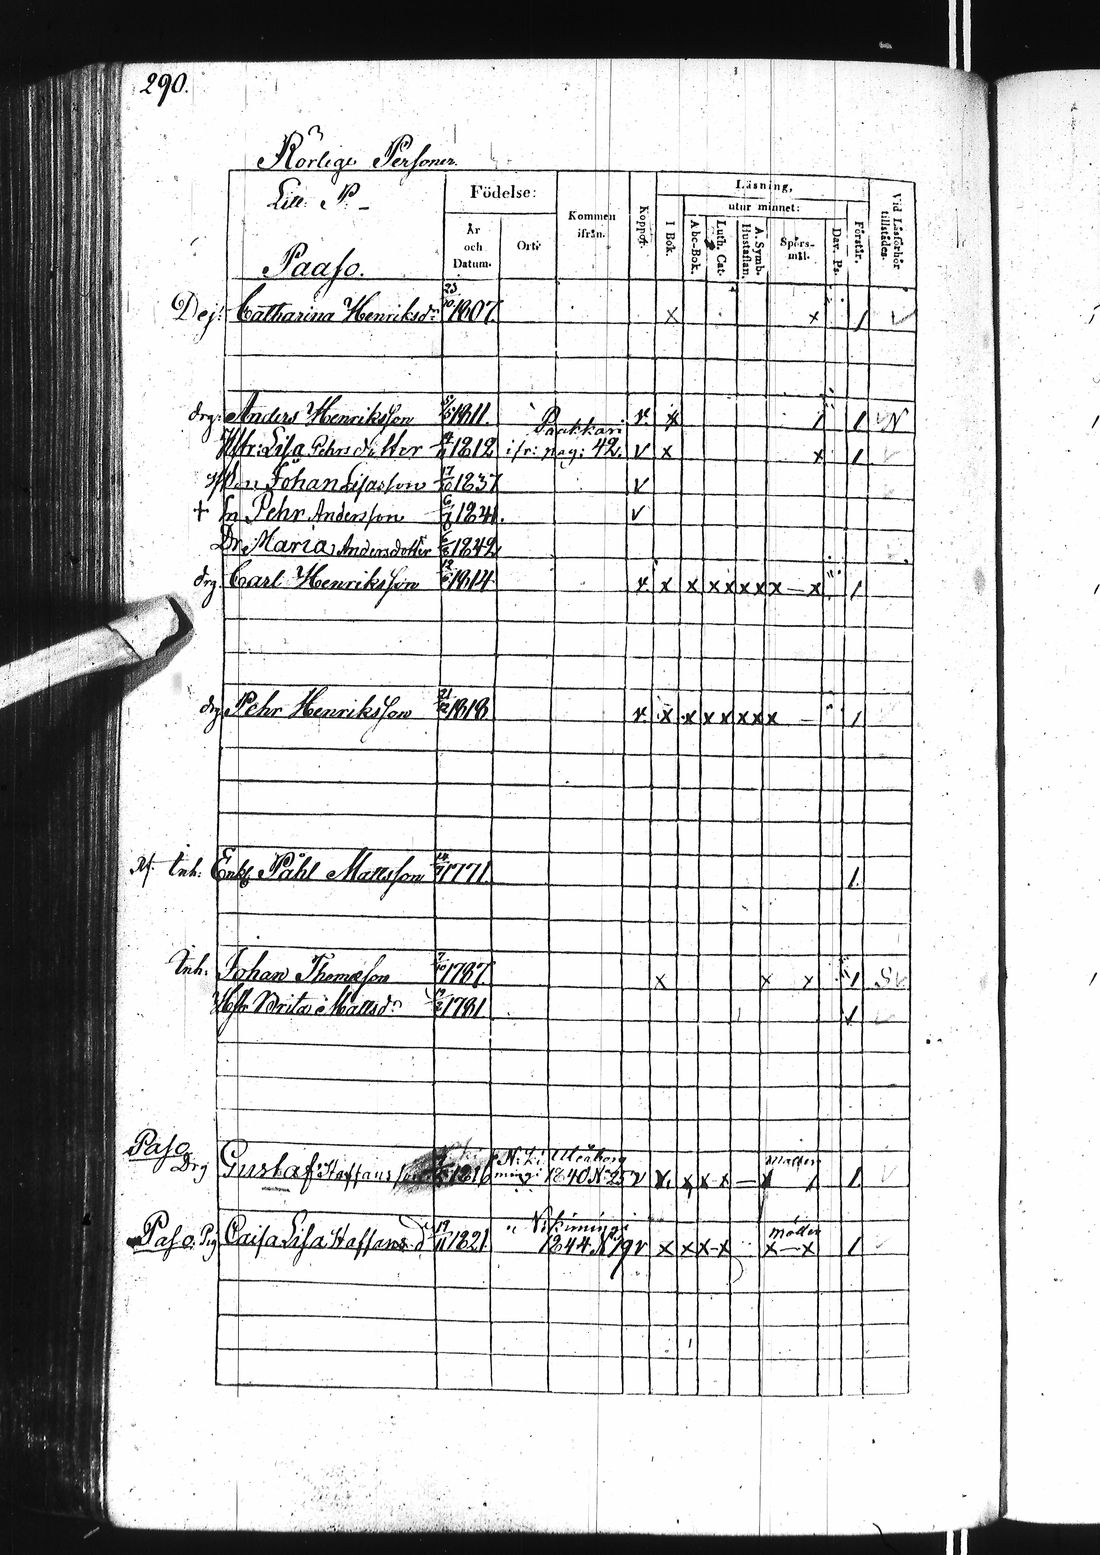 290.
Rörlige Personer.
Litt. P. –
Paaso.
Födelse:
År och Datum.
Ort:
Kommen ifrån.
Koppor.
Läsning,
utur minnet:
I Bok.
Abc-Bok.
Luth. Cat.
A. Symb. Hustaflan.
Spörs-mål.
Dav. Ps.
Förstår.
Vid Läsförhör tillstädes.
Dej: Catharina Henriksdr 23/10 1807. x x 1
drg: Anders Henriksson 1811. v. x 1 1
Paakkari
Hstr: Lisa Pehrsdotter 1812 ifr: pag: 42. v x x 1
Johan Lisasson 17 1837 v
+ Sn Pehr Andersson 6 1841. v
Dr Maria Andersdotter 1842
drg Carl Henriksson 12 1814 v. x x x x x x x – x 1
drg Pehr Henriksson 21/12 1818 v x x x x x x x – 1
Inh: Enkl. Påhl Mattsson 14 1771. 1.
Inh. Johan Thomasson 7/10 1787. x x x 1
Hstr Brita Mattsdr 1781 1
Paso
Drg Gustaf Staffansson 1816 Uleåborg 1840 No 25 v 1
Paso. Pig Caisa Lisa Staffansdr 19/11 1821. Kiminigi
1844 No 79 v x x x x x – x 1